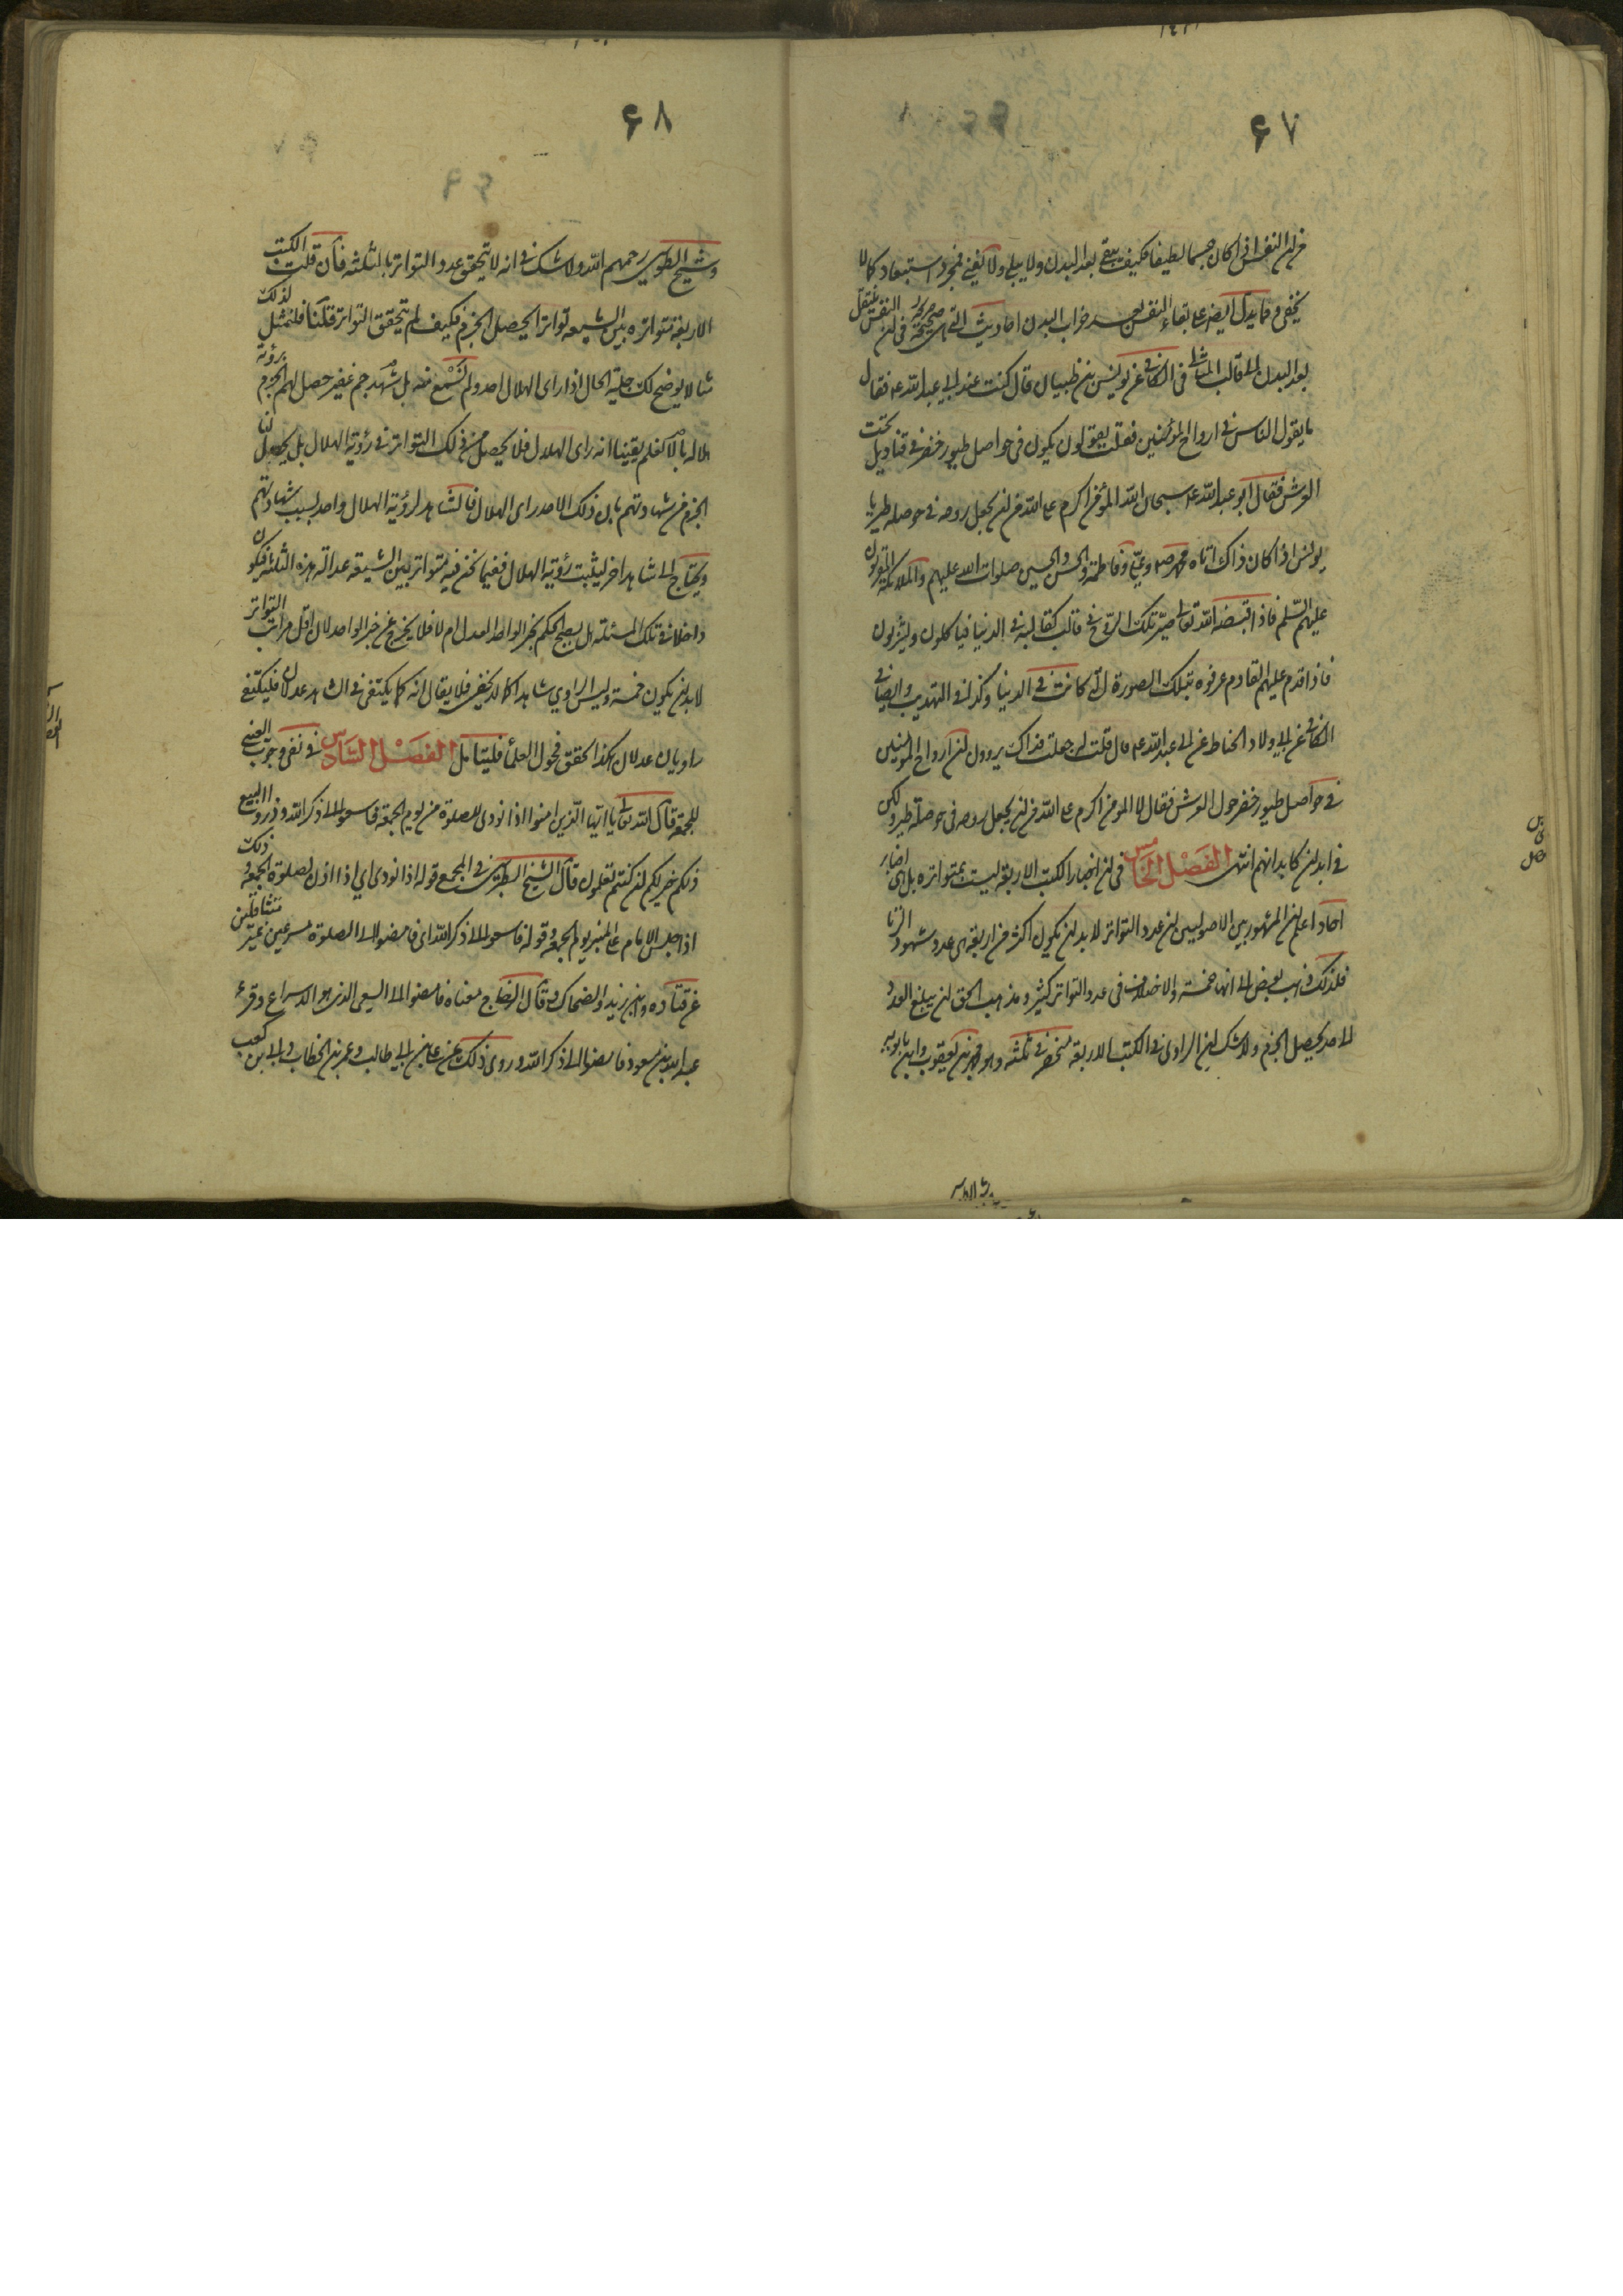 ٦٧
من ان النفس اذا كان جسما لطيفا فكيف يبقى بعد البدن ولا يبلى ولا يفنى فمجرد استبعاد كما لا
يخفى ومما يدل ايضا على بقاء النفس بعد خراب البدن احاديث التى هى صحيحة صريحة فى ان النفس ينتقل
بعد البدن الى قالب المثالى فى الكافى عن يونس بن ظبيان قال كنت عند ابى عبد الله ع فقال
ما يقول الناس فى ارواح المؤمنين فقلت يقولون يكون فى حواصل طيور خضر فى قناديل تحت
العرش فقال ابو عبد الله ع سبحان الله المؤمن اكرم على الله من ان يجعل روحه فى حوصلة طير يا
يونس اذا كان ذاك اتاه محمد ص وعلى وفاطمة والحسن والحسين صلوات الله عليهم والملائكة المقربون
عليهم السلم فاذا قبضه الله تعالى صير تلك الروح فى قالب كقالبه فى الدنيا فياكلون ويشربون
فاذا قدم عليهم القادم عرفوه بتلك الصورة التى كانت فى الدنيا وكذا فى التهذيب وايضا فى
الكافى عن ابى ولاد الحناط عن ابى عبد الله ع قال قلت له جعلت فداك يروون ان ارواح المؤمنين
فى حواصل طيور خضر حول العرش فقال لا المومن اكرم على الله من ان يجعل روحه فى حوصلة طير ولكن
فى ابدان كابدانهم انتهى الفصل الخامس فى ان اخبار الكتب الاربعة ليست بمتواترة بل هى اخبار
احاد اعلم ان المشهور بين الاصوليين ان عدد التواتر لابد ان يكون اكثر من اربعة هى عدد شهود الزنا
فلذلك ذهب بعض الى انها خمسة والاختلاف فى عدد التواتر كثير ومذهب الحق ان يبلغ العدد
الى حد يحصل الجزم ولا شك ان الراوى فى الكتب الاربعة منحصر فى ثلثة وهو محمد بن يعقوب وابن بابويه
٦٨
وشيخ الطوسى رحمهم الله ولا شك فى انه لا يتحقق عدد التواتر بالثلثة فان قلت الكتب
الاربعة متواترة بين الشيعة تواترا يحصل الجزم فكيف لم يتحقق التواتر قلنا فلنمثل لذلك
مثالا يوضح لك جلية الحال اذا راى الهلال احد ولم نسمع منه بل شهد جم غفير حصل لهم الجزم برؤية
فلا يحصل من ذلك التواتر فى رؤية الهلال بل يحصل لنا
الجزم من شهادتهم بان ذلك الاحد راى الهلال فالشاهد لرؤية الهلال واحد لسبب شهادتهم
ويحتاج الى شاهد اخر ليثبت رؤية الهلال ففيما نحن فيه متواتر بين الشيعة عدالة هذه الثلثة فيكون
داخلا فى تلك المسئلة هل يصح الحكم بخبر الواحد العدل ام لا فلا يخرج عن خبر الواحد لان اقل مراتب التواتر
لابد ان يكون خمسة وليس الراوي شاهدا كما لا يخفى فلا يقال انه كما يكتفى فى الشاهد عدلان فليكتفى
راويان عدلان هكذا حقق فحول العلماء فليتامل الفصل السادس فى نفى وجوب العينى
للجمعة قال الله تعالى يا ايها الذين امنوا اذا نودى للصلوة من يوم الجمعة فاسعوا الى ذكر الله وذروا البيع
ذلكم خير لكم ان كنتم تعلمون قال الشيخ الطبرسى فى المجمع قوله اذا نودى اي اذا اذن لصلوة الجمعة وذلك
اذا جلس الامام على المنبر يوم الجمعة وقوله فاسعوا الى ذكر الله اى فامضوا الى الصلوة مسرعين غير متثاقلين
عن قتاده وابن زيد والضحاك وقال الزجاج معناه فامضوا الى السعى الذى هو الاسراع وقرء
عبد الله بن مسعود فامضوا الى ذكر الله وروى ذلك عن على بن ابى طالب وعمر بن الخطاب وابى بن كعب